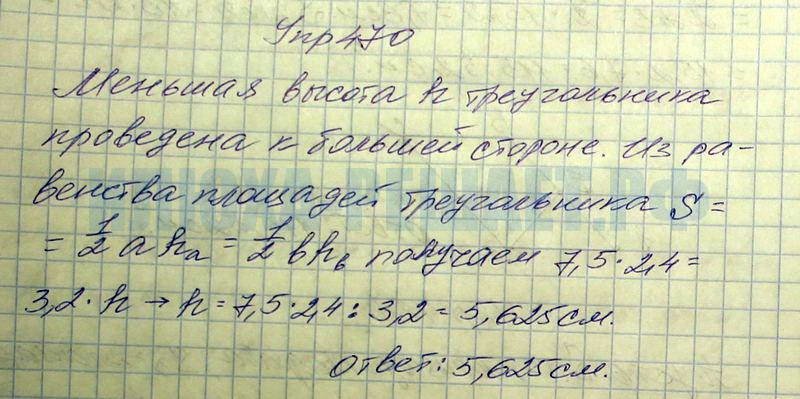 Упр 470
Меньшая высота h треугольника
проведена к большей стороне. Из ра-
венства площадей треугольника S =
= 1/2 a hₐ = 1/2 в hв получаем 7,5·2,4 =
3,2·h → h = 7,5·2,4 : 3,2 = 5,625 см.
Ответ: 5,625 см.